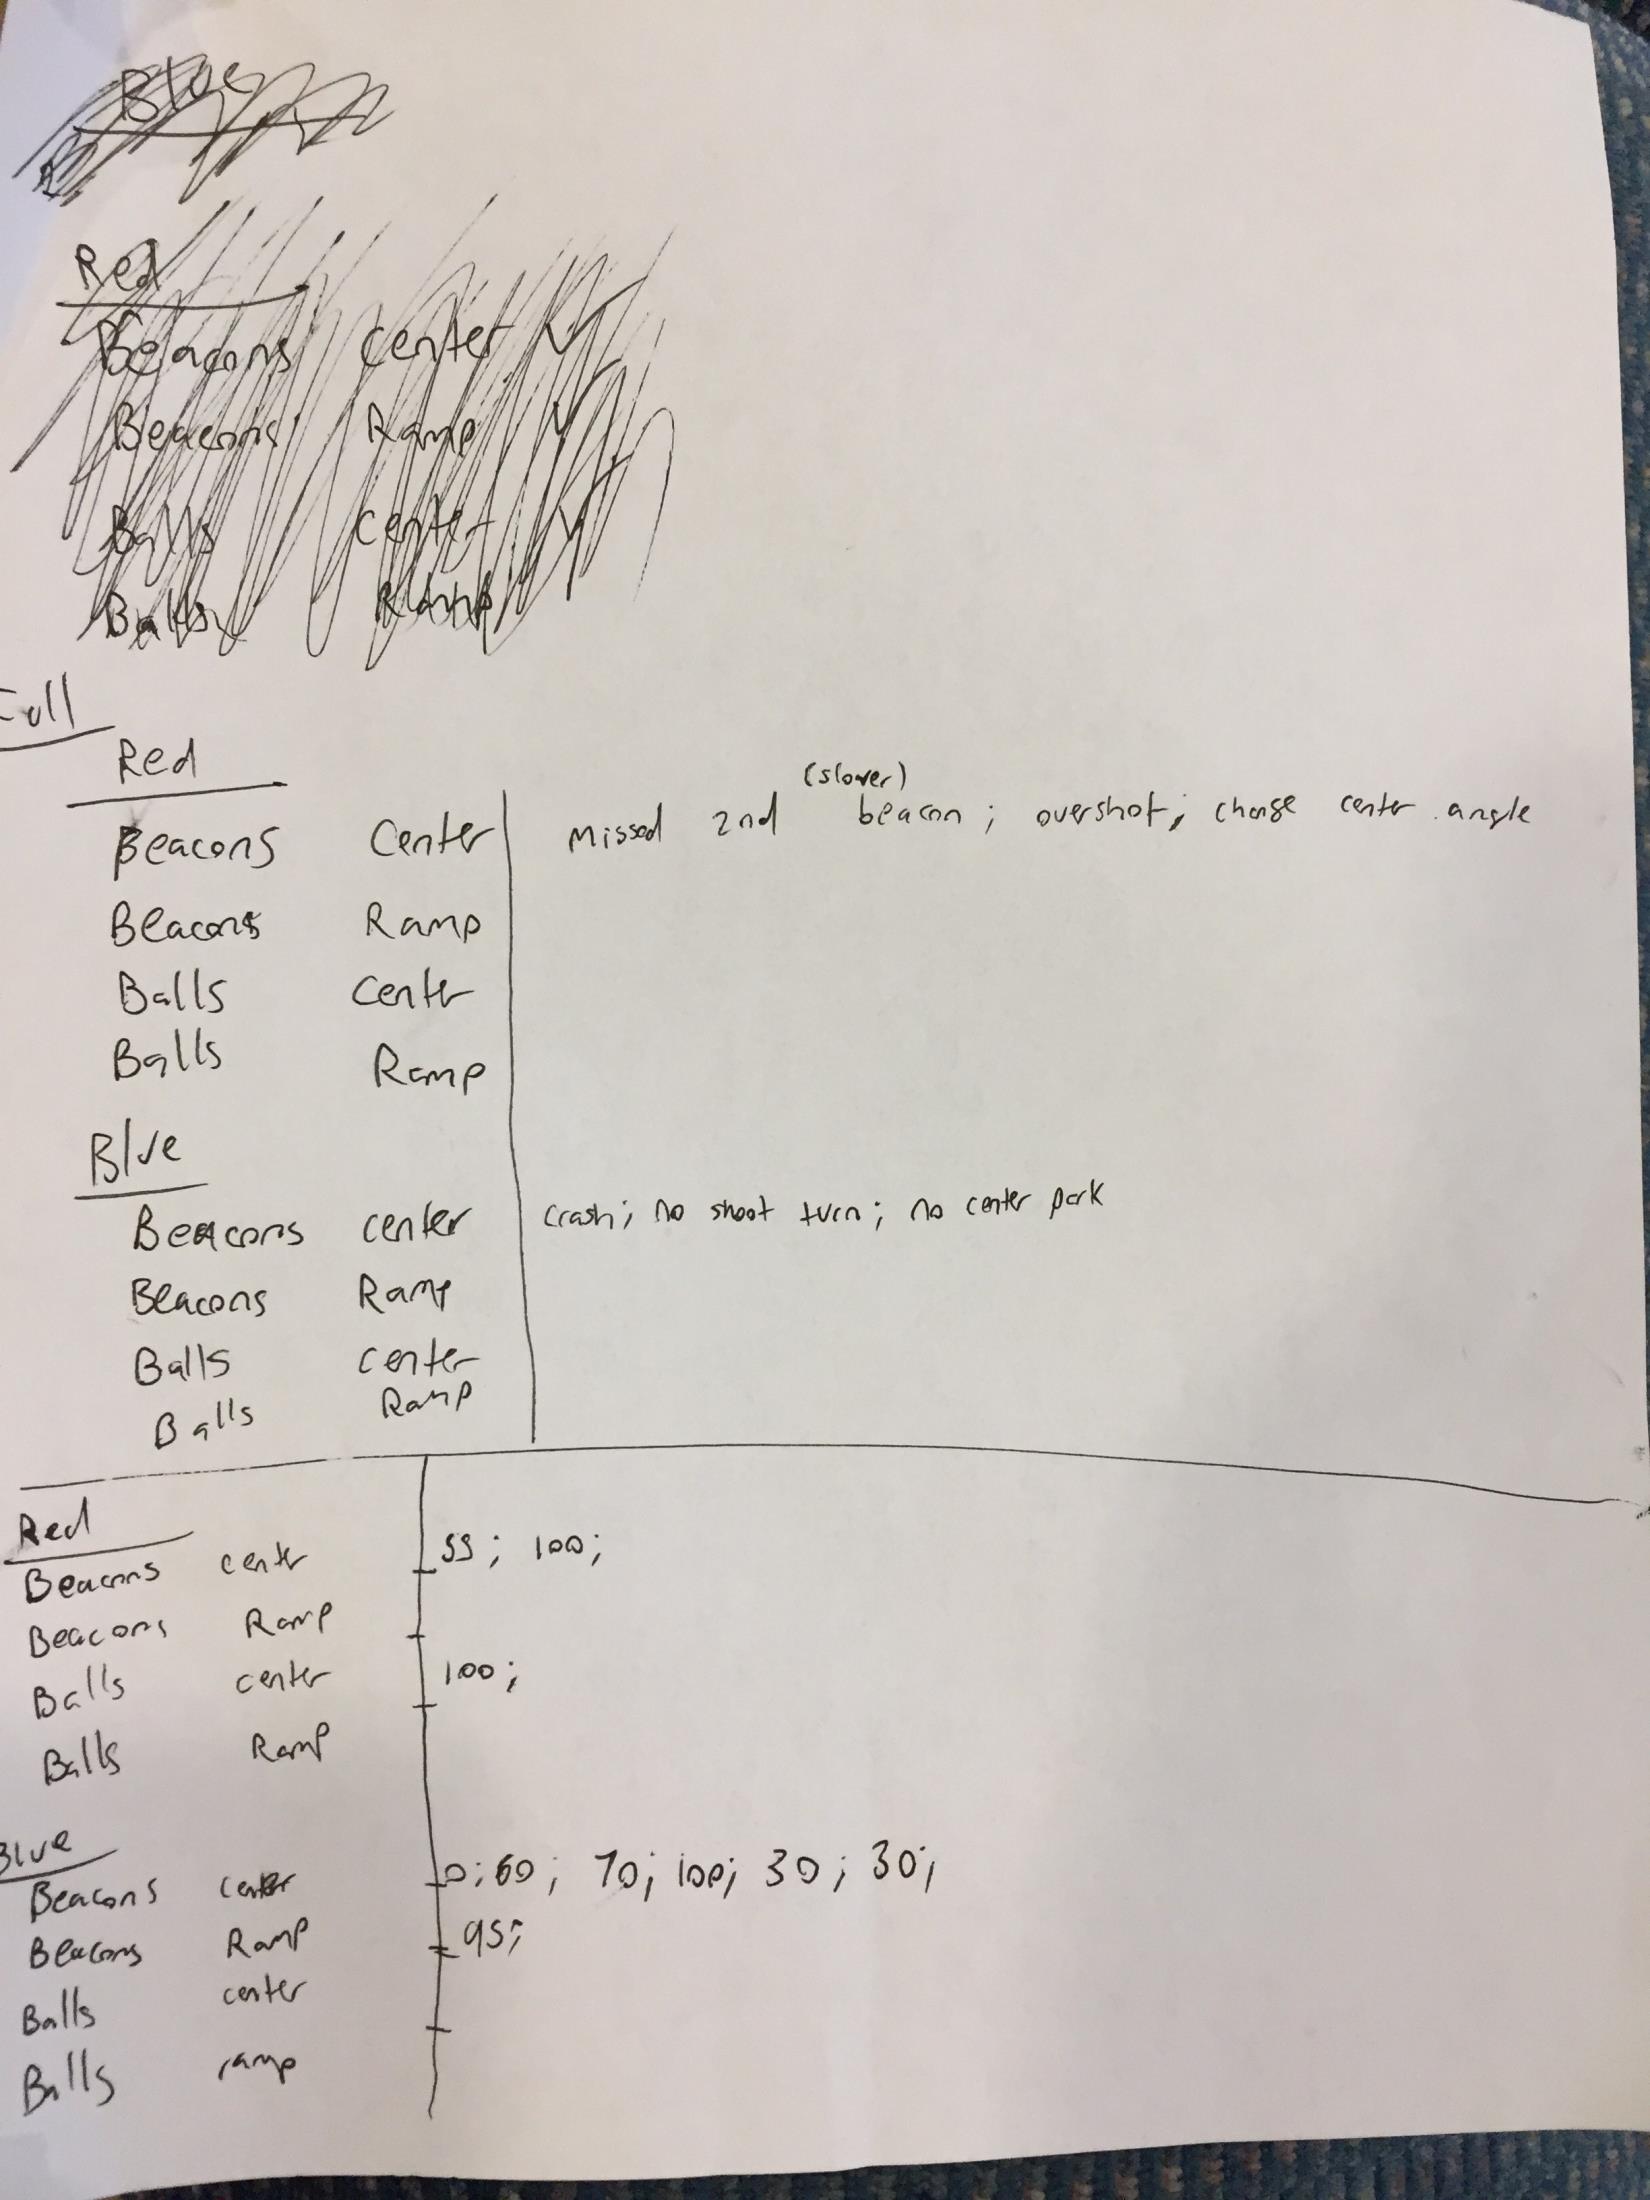 Blue
Red
Beacons center
Beacons Ramp
Balls center
Balls Ramp
Full
Red
Beacons Center Missed 2nd (slower) beacon; overshot; change center angle
Beacons Ramp
Balls Center
Balls Ramp
Blue
Beacons center crash; no shoot turn; no center park
Beacons Ramp
Balls center
Balls Ramp
Red
Beacons center 55; 100;
Beacons Ramp
Balls center 100;
Balls Ramp
Blue
Beacons center 0; 60; 70; 100; 30; 30;
Beacons Ramp 95;
Balls center
Balls ramp